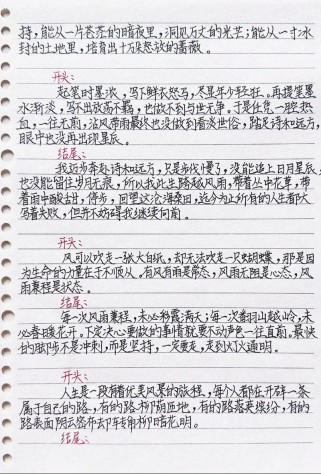 持，能从一片苍茫的暗夜里，洞见万丈的光芒；能从一寸冰
封的土地里，培育出十万朵怒放的蔷薇。
开头：
起笔时墨浓，写下鲜衣怒马，尽显年少轻狂。再提笔墨
水渐淡，写不出放荡不羁，也做不到与世无争。于是任凭一腔热
血，一往无前，沾风带雨最终也没做到看淡世俗，踏足诗和远方，
眼中也没再出现星辰。
结尾：
我迈步奔赴诗和远方，只是步伐慢了，没能追上日月星辰，
也没能留住岁月无痕，所以我此生踏越风雨，带着丛中花草，带
着雨中酸甜，停步，回望这沧海桑田，远今为止所有的人生都大
写着失败，但并不妨碍我继续向前。
开头：
风可以吹走一张大白纸，却无法吹走一只蝴蝶，那是因
为生命的力量在于不顺从。有风有雨是常态，风雨无阻是心态，风
雨兼程是状态。
结尾：
每一次风雨兼程，未必彩霞满天；每一次翻山越岭，未
必春暖花开。下定决心要做的事情就要不动声色一往直前。最快
的脚步不是冲刺，而是坚持，一定要走，走到灯火通明。
开头：
人生是一段有着优美风景的旅程，每个人都在开辟一条
属于自己的路，有的路柳荫匝地，有的路落英缤纷，有的
路表面阴云密布却车转柳暗花明。
结尾：